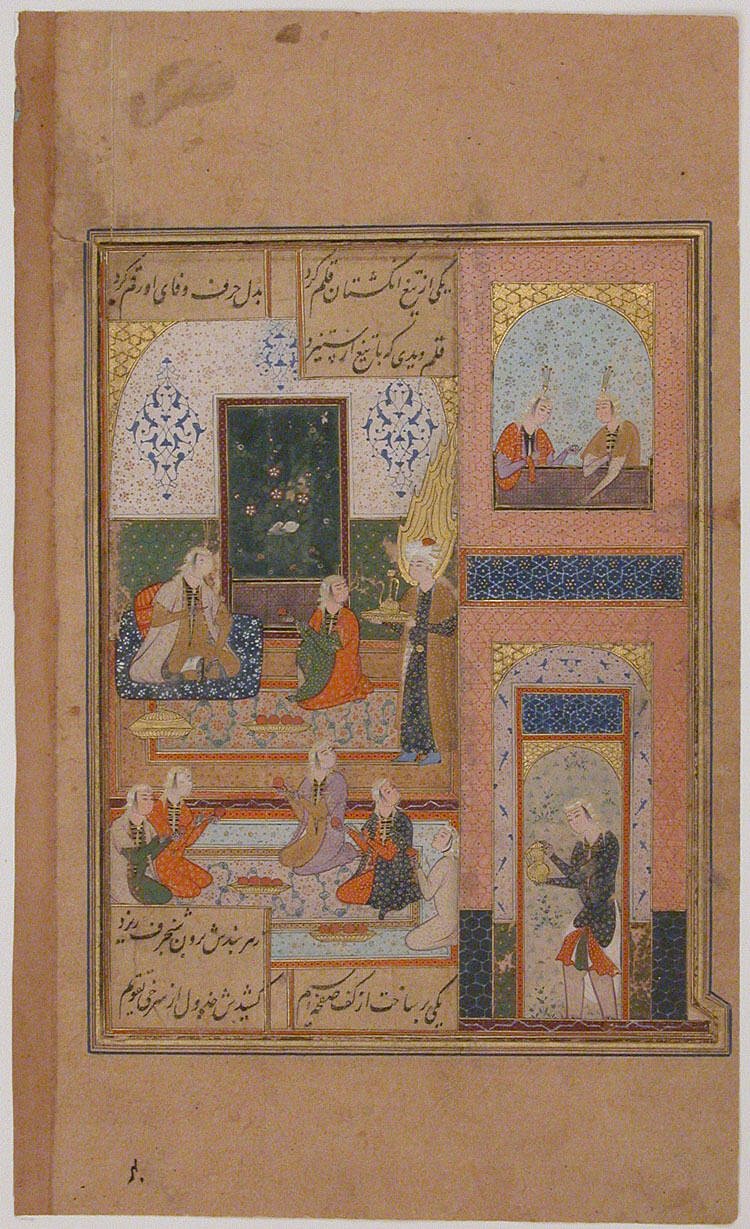 یکی از تیغ انگشتان قلم کرد
بدل حرف وفای او رقم کرد
قلم دیدی که با تیغ ار ستیزد
ز هر بندش برون شنجرف ریزد
یکی بر ساخت از کف صفحه سیم
کشیدش جدول از سرخی تقویم